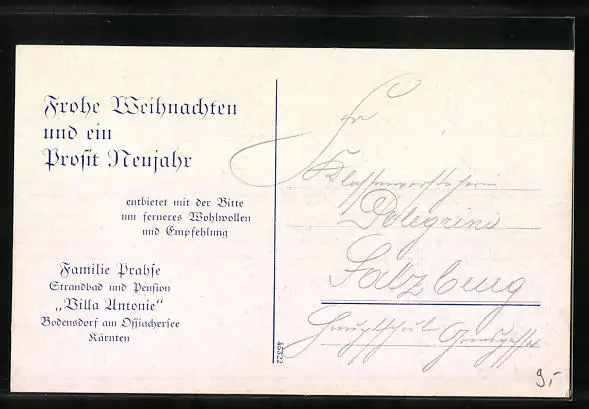 Frohe Weihnachten
und ein
Prosit Neujahr
entbietet mit der Bitte
um ferneres Wohlwollen
und Empfehlung
Familie Prahse
Strandbad und Pension
„Villa Antonie“
Bodensdorf am Ossiachersee
Kärnten
45322
Fr
Klassenvorsteherin
Pelegrini
Salzburg
Hauptschule
9,-